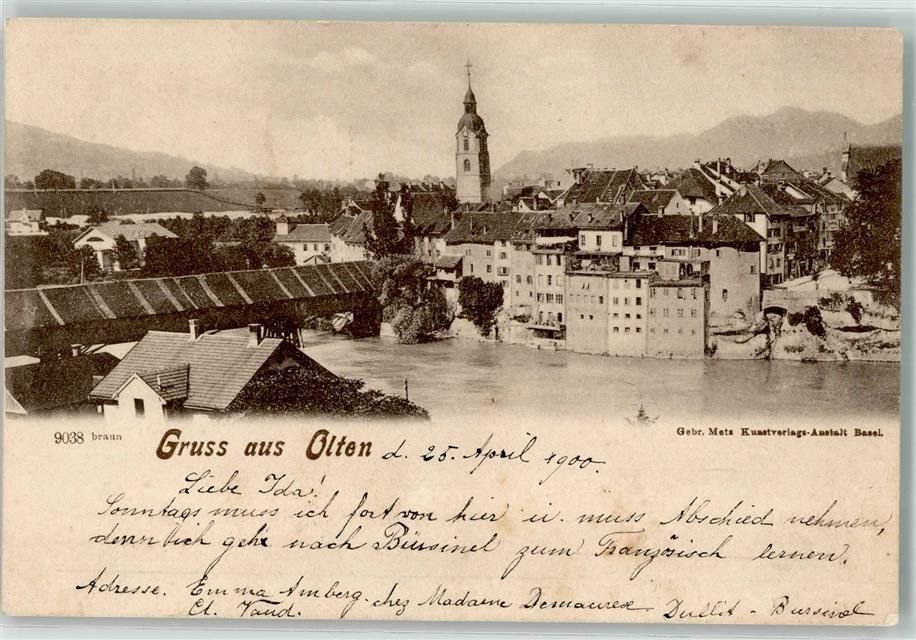 9038 braun
Gruss aus Olten d. 25. April 1900.
Gebr. Metz Kunstverlags-Anstalt Basel.
Liebe Ida!
Sonntags muss ich fort von hier u. muss Abschied nehmen,
denn ich gehe nach Bürsinel zum Französisch lernen.
Adresse. Emma Amberg. chez Madame Demaurex Dullit - Bursinel
Ct. Vaud.